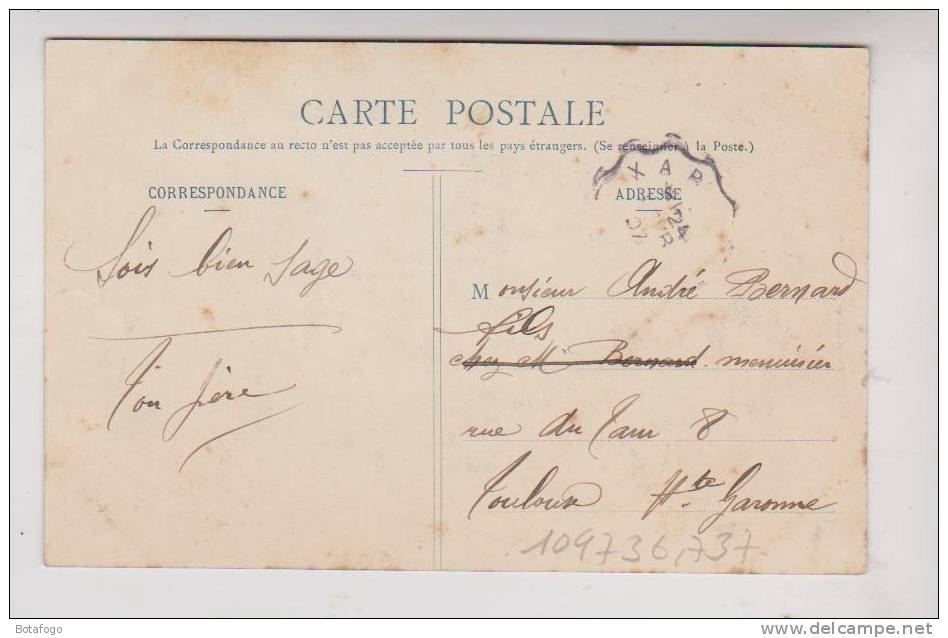 CARTE POSTALE
La Correspondance au recto n'est pas acceptée par tous les pays étrangers. (Se renseigner à la Poste.)
CORRESPONDANCE
ADRESSE
X A R
24
07
Sois bien sage
Ton père
Monsieur André Bernard
fils
chez M. Bernard menuisier
rue du Taur 8
Toulouse Hte Garonne
109736,737
Botafogo
www.delcampe.net